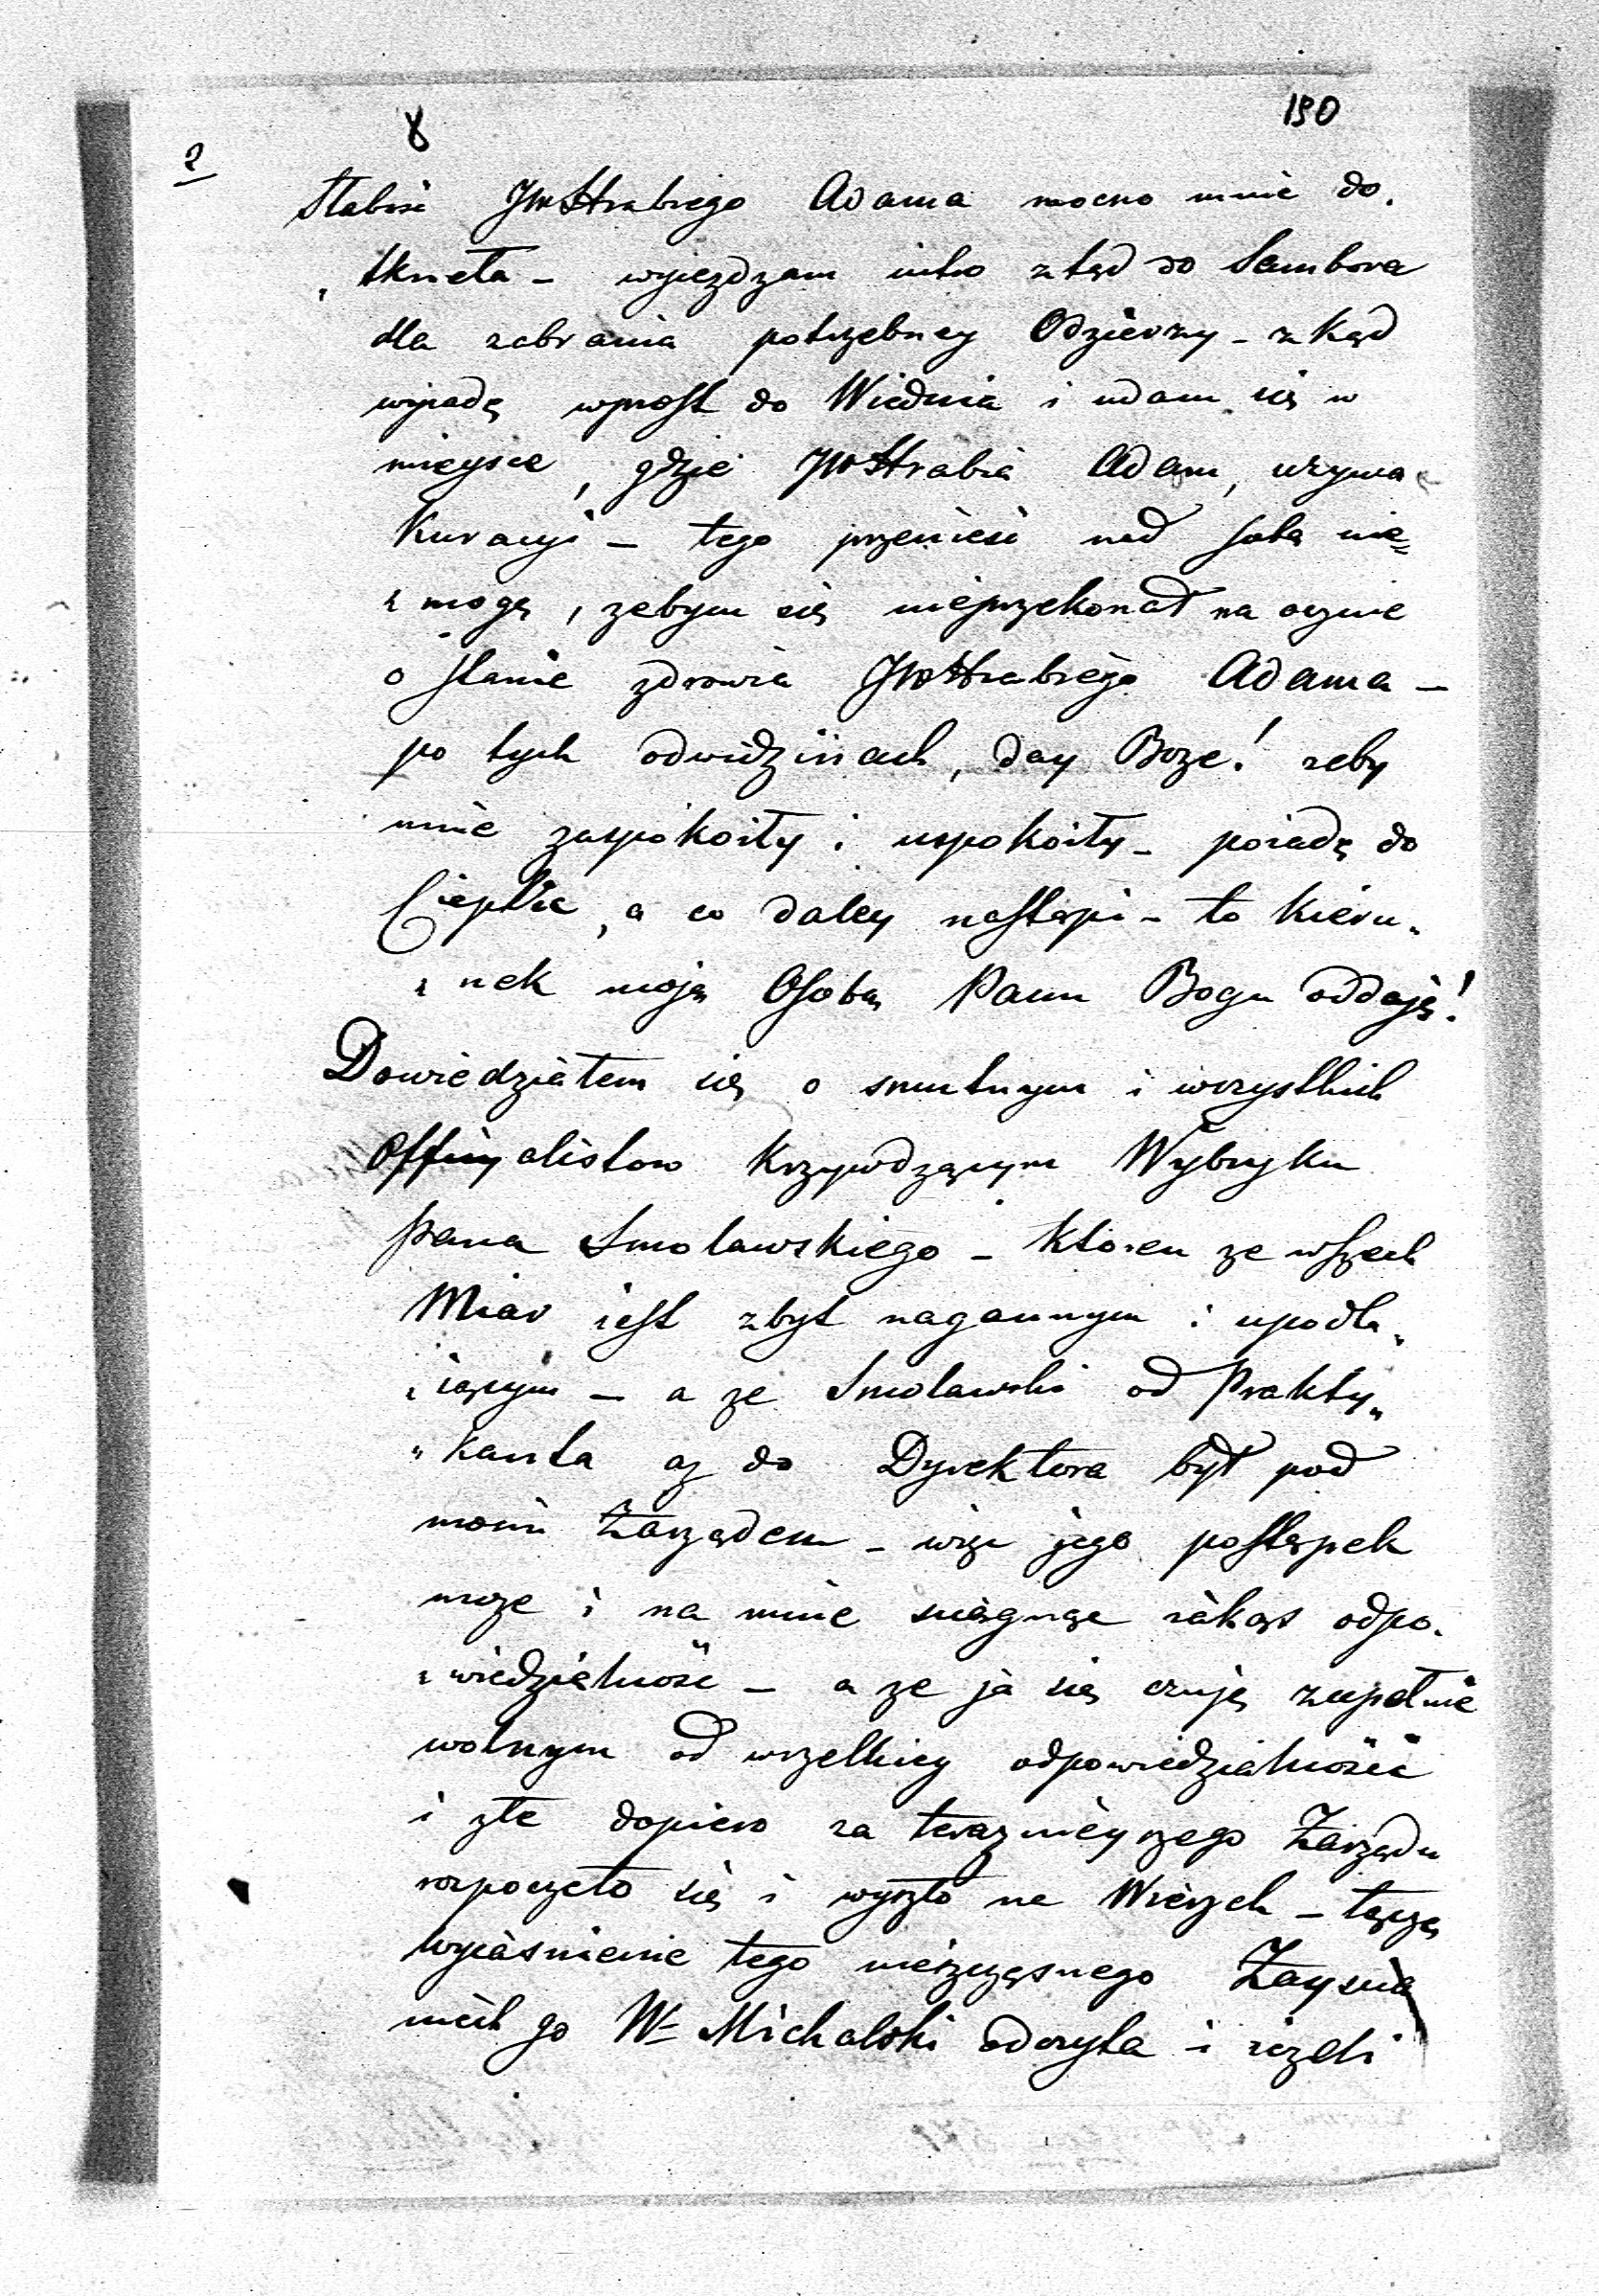 8 190
2
Słabość JWHrabiego Adama mocno mnie do„
„tkneła – wyiezdzam iutro ztąd do Sambora
dla zabrania potrzebney Odzierzy – zkąd
wyiadę wprost do Wiednia i udam się w
mieysce, gdzie JWHrabia Adam, uzywa
Kuracyi – tego przenieść nad sobą nie„
„mogę, zebym się nieprzekonał na ocznie
o stanie zdrowia JWHrabiego Adama –
po tych odwidzinach, day Boze! zeby
mnie zaspokoiły i uspokoiły – poiadę do
Cieplic, a co daley nastąpi – to kieru„
„nek moją Osobą Panu Bogu oddaję!
Dowiedziałem się o smutnym i wszystkich
Officyalistow krzywdzącym Wybryku
pana Smolawskiego – ktoren ze wszech
Miar iest zbyt nagannym i upodla„
„iącym – a ze Smolawski od Prakty„
„kanta az do Dyrektora był pod
moim Zarządem – więc jego postąpek
moze i na mnie sciągnąc iakąś odpo„
„wiedzialność – a ze ja się czuję zupełnie
wolnym od wszelkiey odpowiedzialności
i złe dopiero za teraznieyszego Zarządu
rozpoczeło się i wyszło na Wierzch – łączę
wyiasnienie tego nieszczęsnego Zayscia
niech go W. Michalski odczyta i iezeli